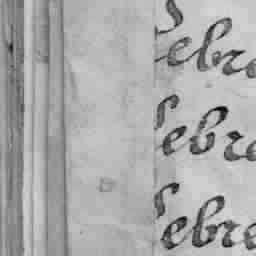 ebre
ebre
ebre